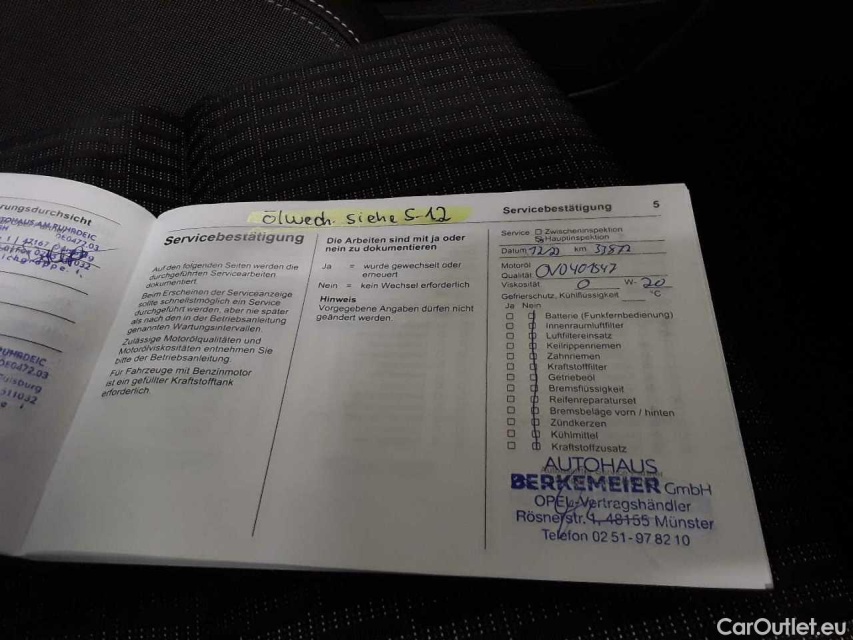 rungsdurchsicht
Ölwech. siehe S-12
Servicebestätigung
Auf den folgenden Seiten werden die
durchgeführten Servicearbeiten
dokumentiert.
Beim Erscheinen der Serviceanzeige
sollte schnellstmöglich ein Service
durchgeführt werden, aber nie später
als nach den in der Betriebsanleitung
genannten Wartungsintervallen.
Zulässige Motorölqualitäten und
Motorölviskositäten entnehmen Sie
bitte der Betriebsanleitung.
Für Fahrzeuge mit Benzinmotor
ist ein gefüllter Kraftstofftank
erforderlich.
Die Arbeiten sind mit ja oder
nein zu dokumentieren
Ja = wurde gewechselt oder
erneuert
Nein = kein Wechsel erforderlich
Hinweis
Vorgegebene Angaben dürfen nicht
geändert werden.
Servicebestätigung 5
Service Zwischeninspektion
Hauptinspektion
Datum km
Motoröl
Qualität OV0401547
Viskosität 0 W- 20
Gefrierschutz, Kühlflüssigkeit °C
Ja Nein
Batterie (Funkfernbedienung)
Innenraumluftfilter
Luftfiltereinsatz
Keilrippenriemen
Zahnriemen
Kraftstofffilter
Getriebeöl
Bremsflüssigkeit
Reifenreparaturset
Bremsbeläge vorn / hinten
Zündkerzen
Kühlmittel
Kraftstoffzusatz
AUTOHAUS
BERKEMEIER GmbH
OPEL-Vertragshändler
Rösnerstr. 1, 48155 Münster
Telefon 02 51- 97 82 10
CarOutlet.eu